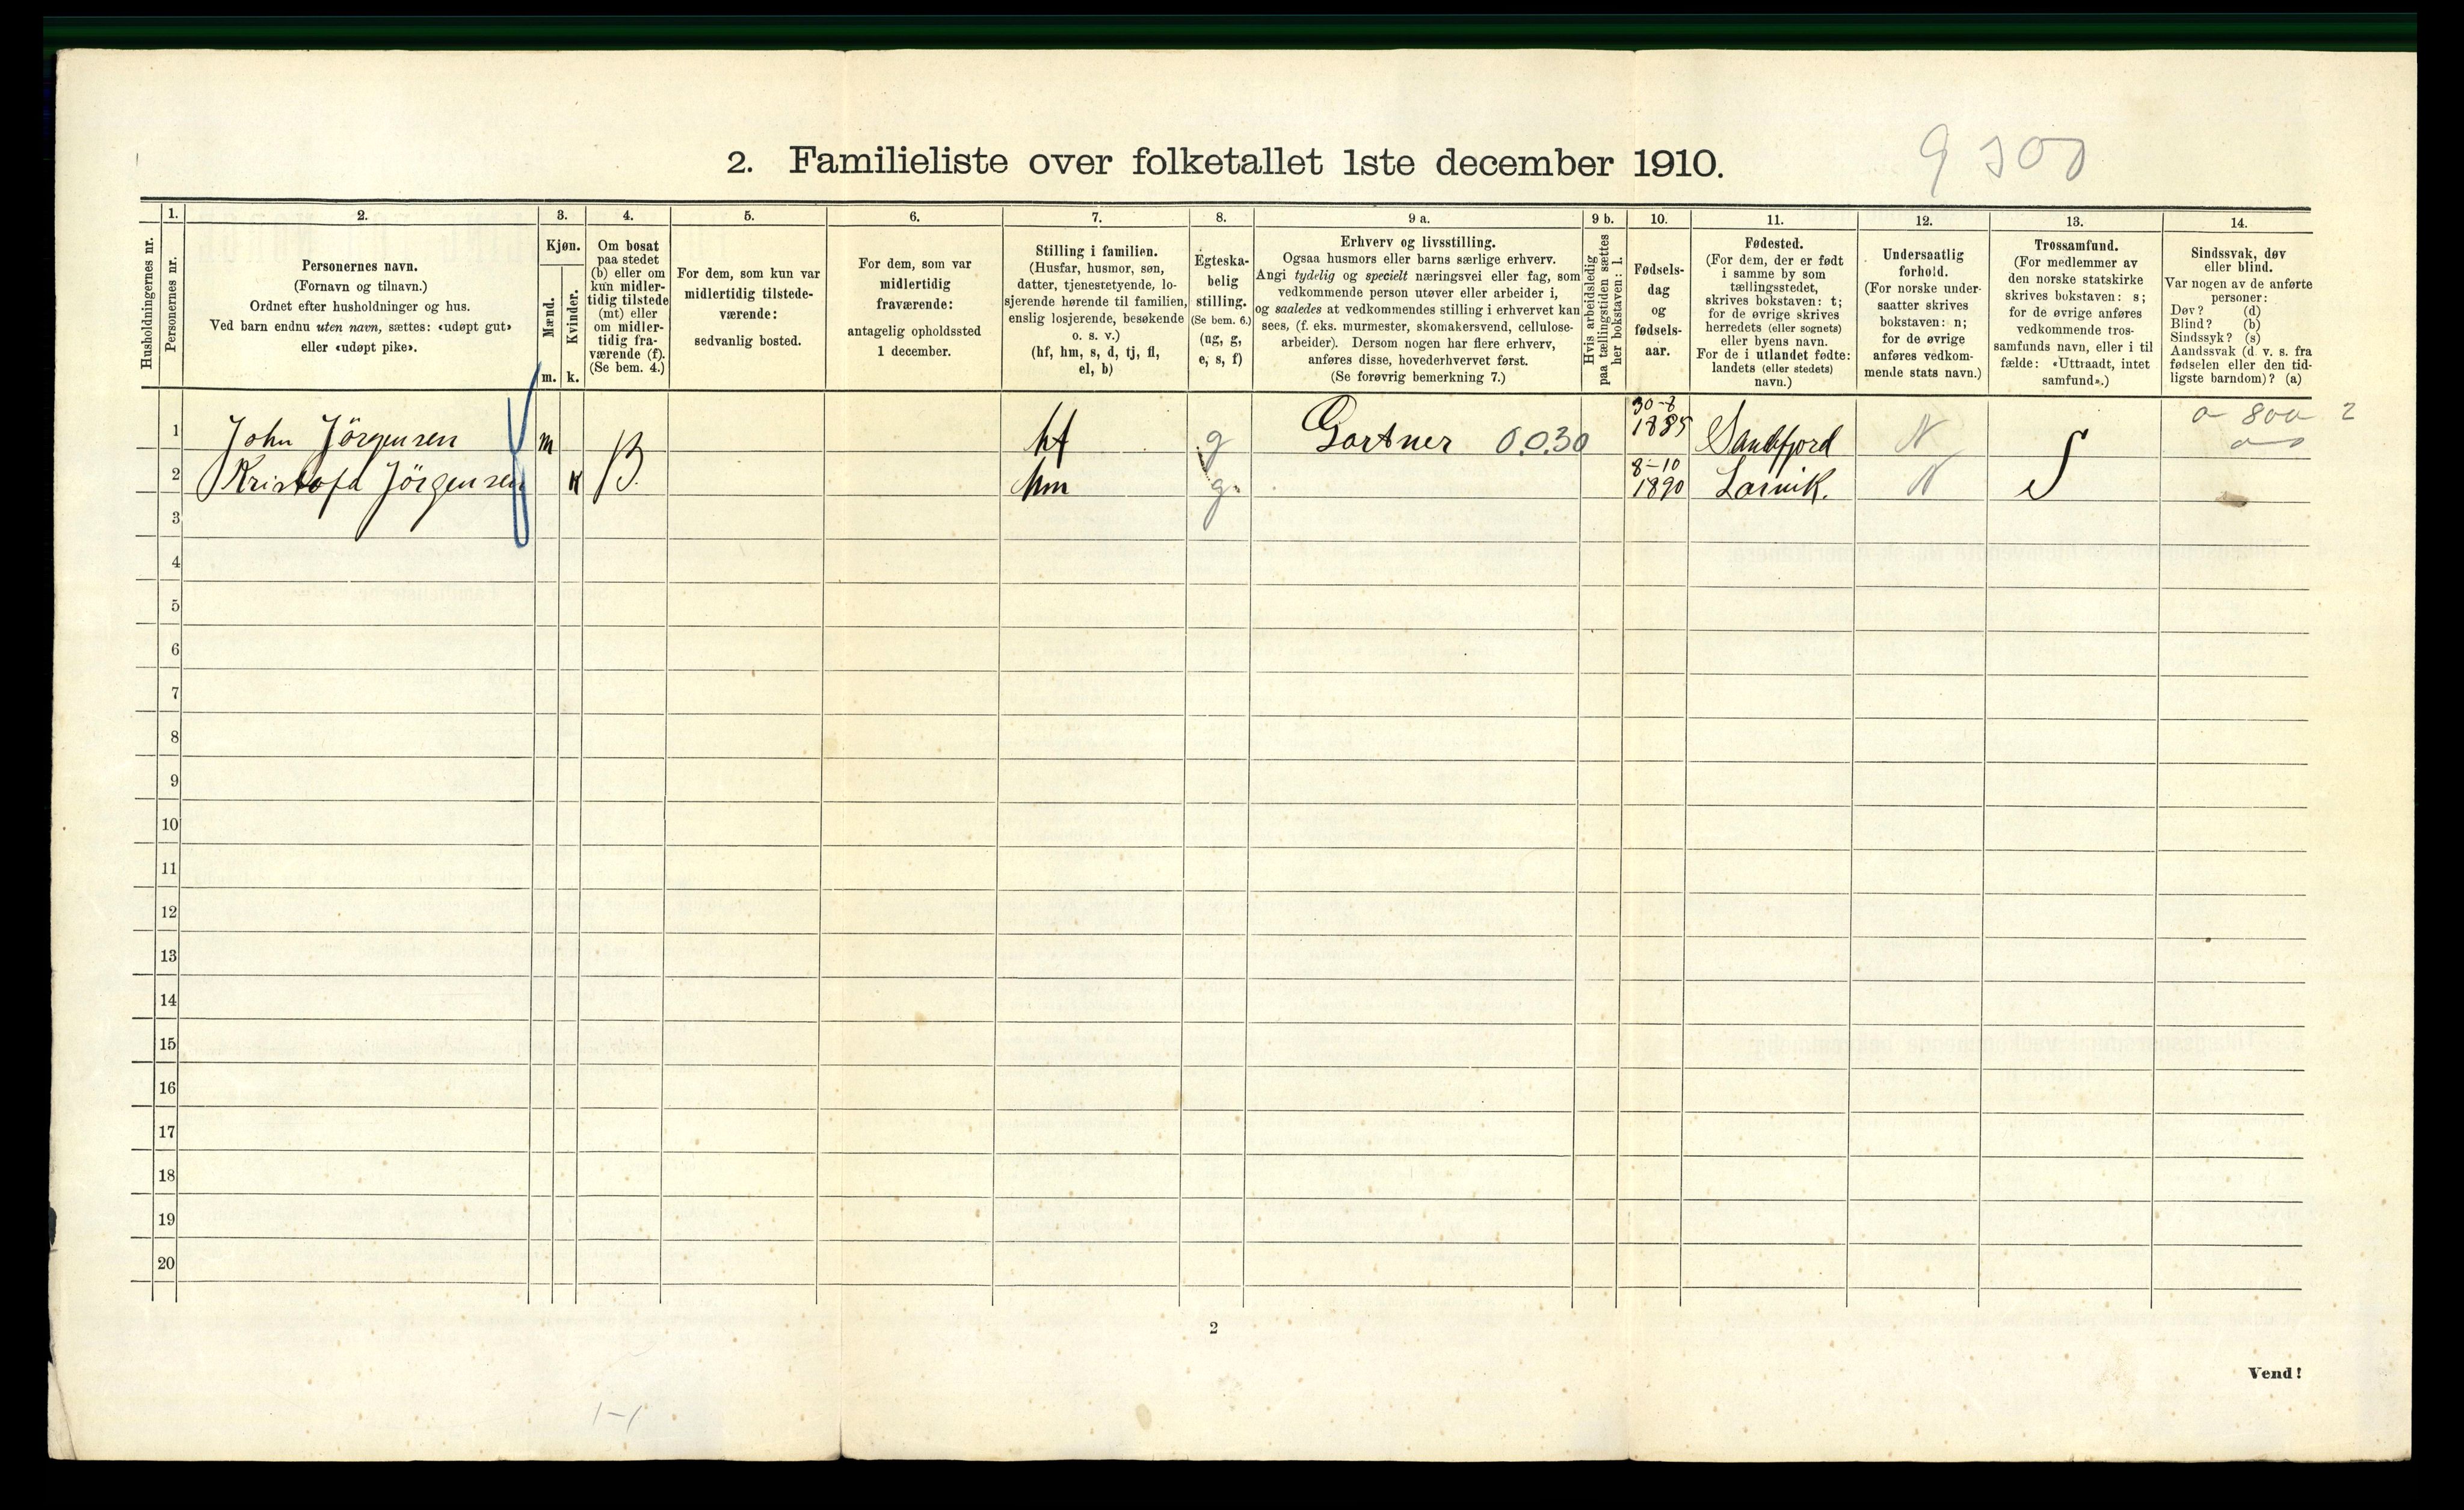 2. Familieliste over folketallet 1ste december 1910.
9 300
Husholdningernes nr.
1.
Personernes nr.
2.
Personernes navn.
(Fornavn og tilnavn.)
Ordnet efter husholdninger og hus.
Ved barn endnu uten navn, sættes: «udøpt gut»
eller «udøpt pike».
3.
Kjøn.
Mænd.
Kvinder.
m. k.
4.
Om bosat
paa stedet
(b) eller om
kun midler-
tidig tilstede
(mt) eller
om midler-
tidig fra-
værende (f).
(Se bem. 4.)
5.
For dem, som kun var
midlertidig tilstede-
værende:
sedvanlig bosted.
6.
For dem, som var
midlertidig
fraværende:
antagelig opholdssted
1 december.
7.
Stilling i familien.
(Husfar, husmor, søn,
datter, tjenestetyende, lo-
sjerende hørende til familien,
enslig losjerende, besøkende
o. s. v.)
(hf, hm, s, d, tj, fl,
el, b)
8.
Egteska-
belig
stilling.
(Se bem. 6.)
(ng, g,
e, s, f)
9 a.
Erhverv og livsstilling.
Ogsaa husmors eller barns særlige erhverv.
Angi tydelig og specielt næringsvei eller fag, som
vedkommende person utøver eller arbeider i,
og saaledes at vedkommendes stilling i erhvervet kan
sees, (f. eks. murmester, skomakersvend, cellulose-
arbeider). Dersom nogen har flere erhverv,
anføres disse, hovederhvervet først.
(Se forøvrig bemerkning 7.)
9 b.
Hvis arbeidsledig
paa tællingstiden sættes
her bokstaven: l.
10.
Fødsels-
dag
og
fødsels-
aar.
11.
Fødested.
(For dem, der er født
i samme by som
tællingsstedet,
skrives bokstaven: t;
for de øvrige skrives
herredets (eller sognets)
eller byens navn.
For de i utlandet fødte:
landets (eller stedets)
navn.)
12.
Undersaatlig
forhold.
(For norske under-
saatter skrives
bokstaven: n;
for de øvrige
anføres vedkom-
mende stats navn.)
13.
Trossamfund.
(For medlemmer av
den norske statskirke
skrives bokstaven: s;
for de øvrige anføres
vedkommende tros-
samfunds navn, eller i til
fælde: «Uttraadt, intet
samfund».)
14.
Sindssvak, døv
eller blind.
Var nogen av de anførte
personer:
Døv? (d)
Blind? (b)
Sindssyk? (s)
Aandssvak (d. v. s. fra
fødselen eller den tid-
ligste barndom)? (a)
1 John Jörgensen m hf g Gartner 0.0.30 30-8 1885 Sandefjord N 0 - 800 2
2 Kristofa Jörgensen k B. hm g. 8-10 1890 Larvik. N S
3
4
5
6
7
8
9
10
11
12
13
14
15
16
17
18
19
20
2
Vend!
1-1